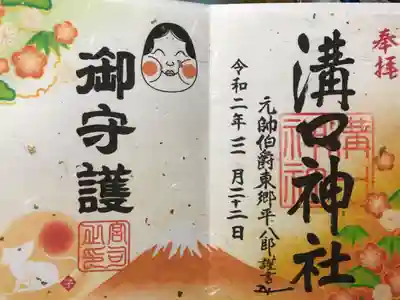 奉拝
溝口神社
元帥伯爵東郷平八郎謹書
令和二年一月二十二日
御守護
宮司之印
子